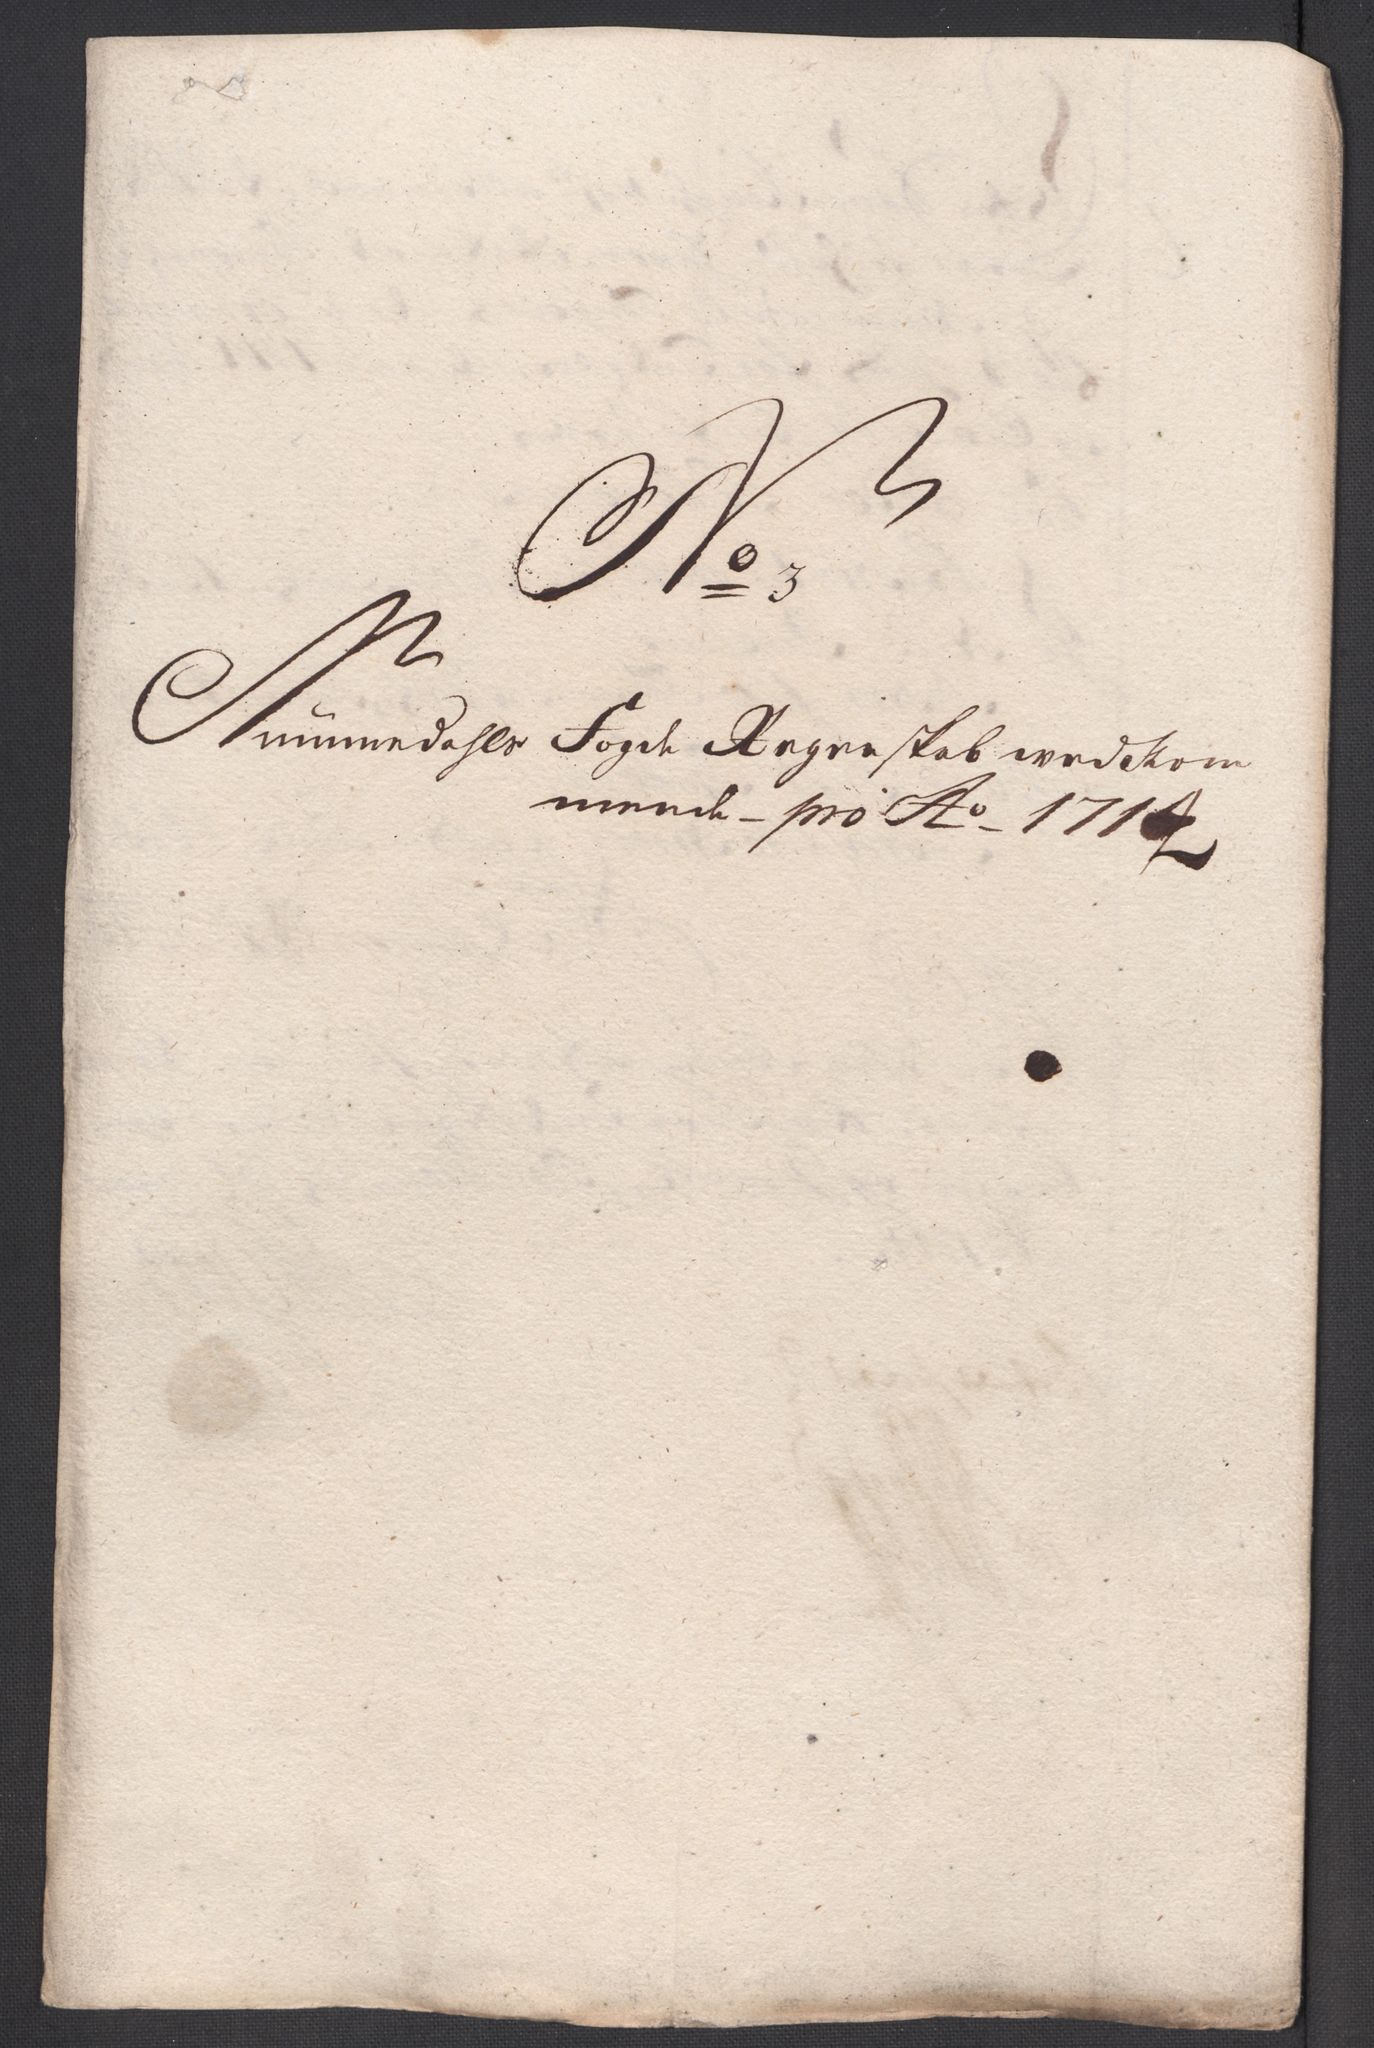 No 3
Nummedahls Fogde Regenskab wedkom
mende - pro Ao -